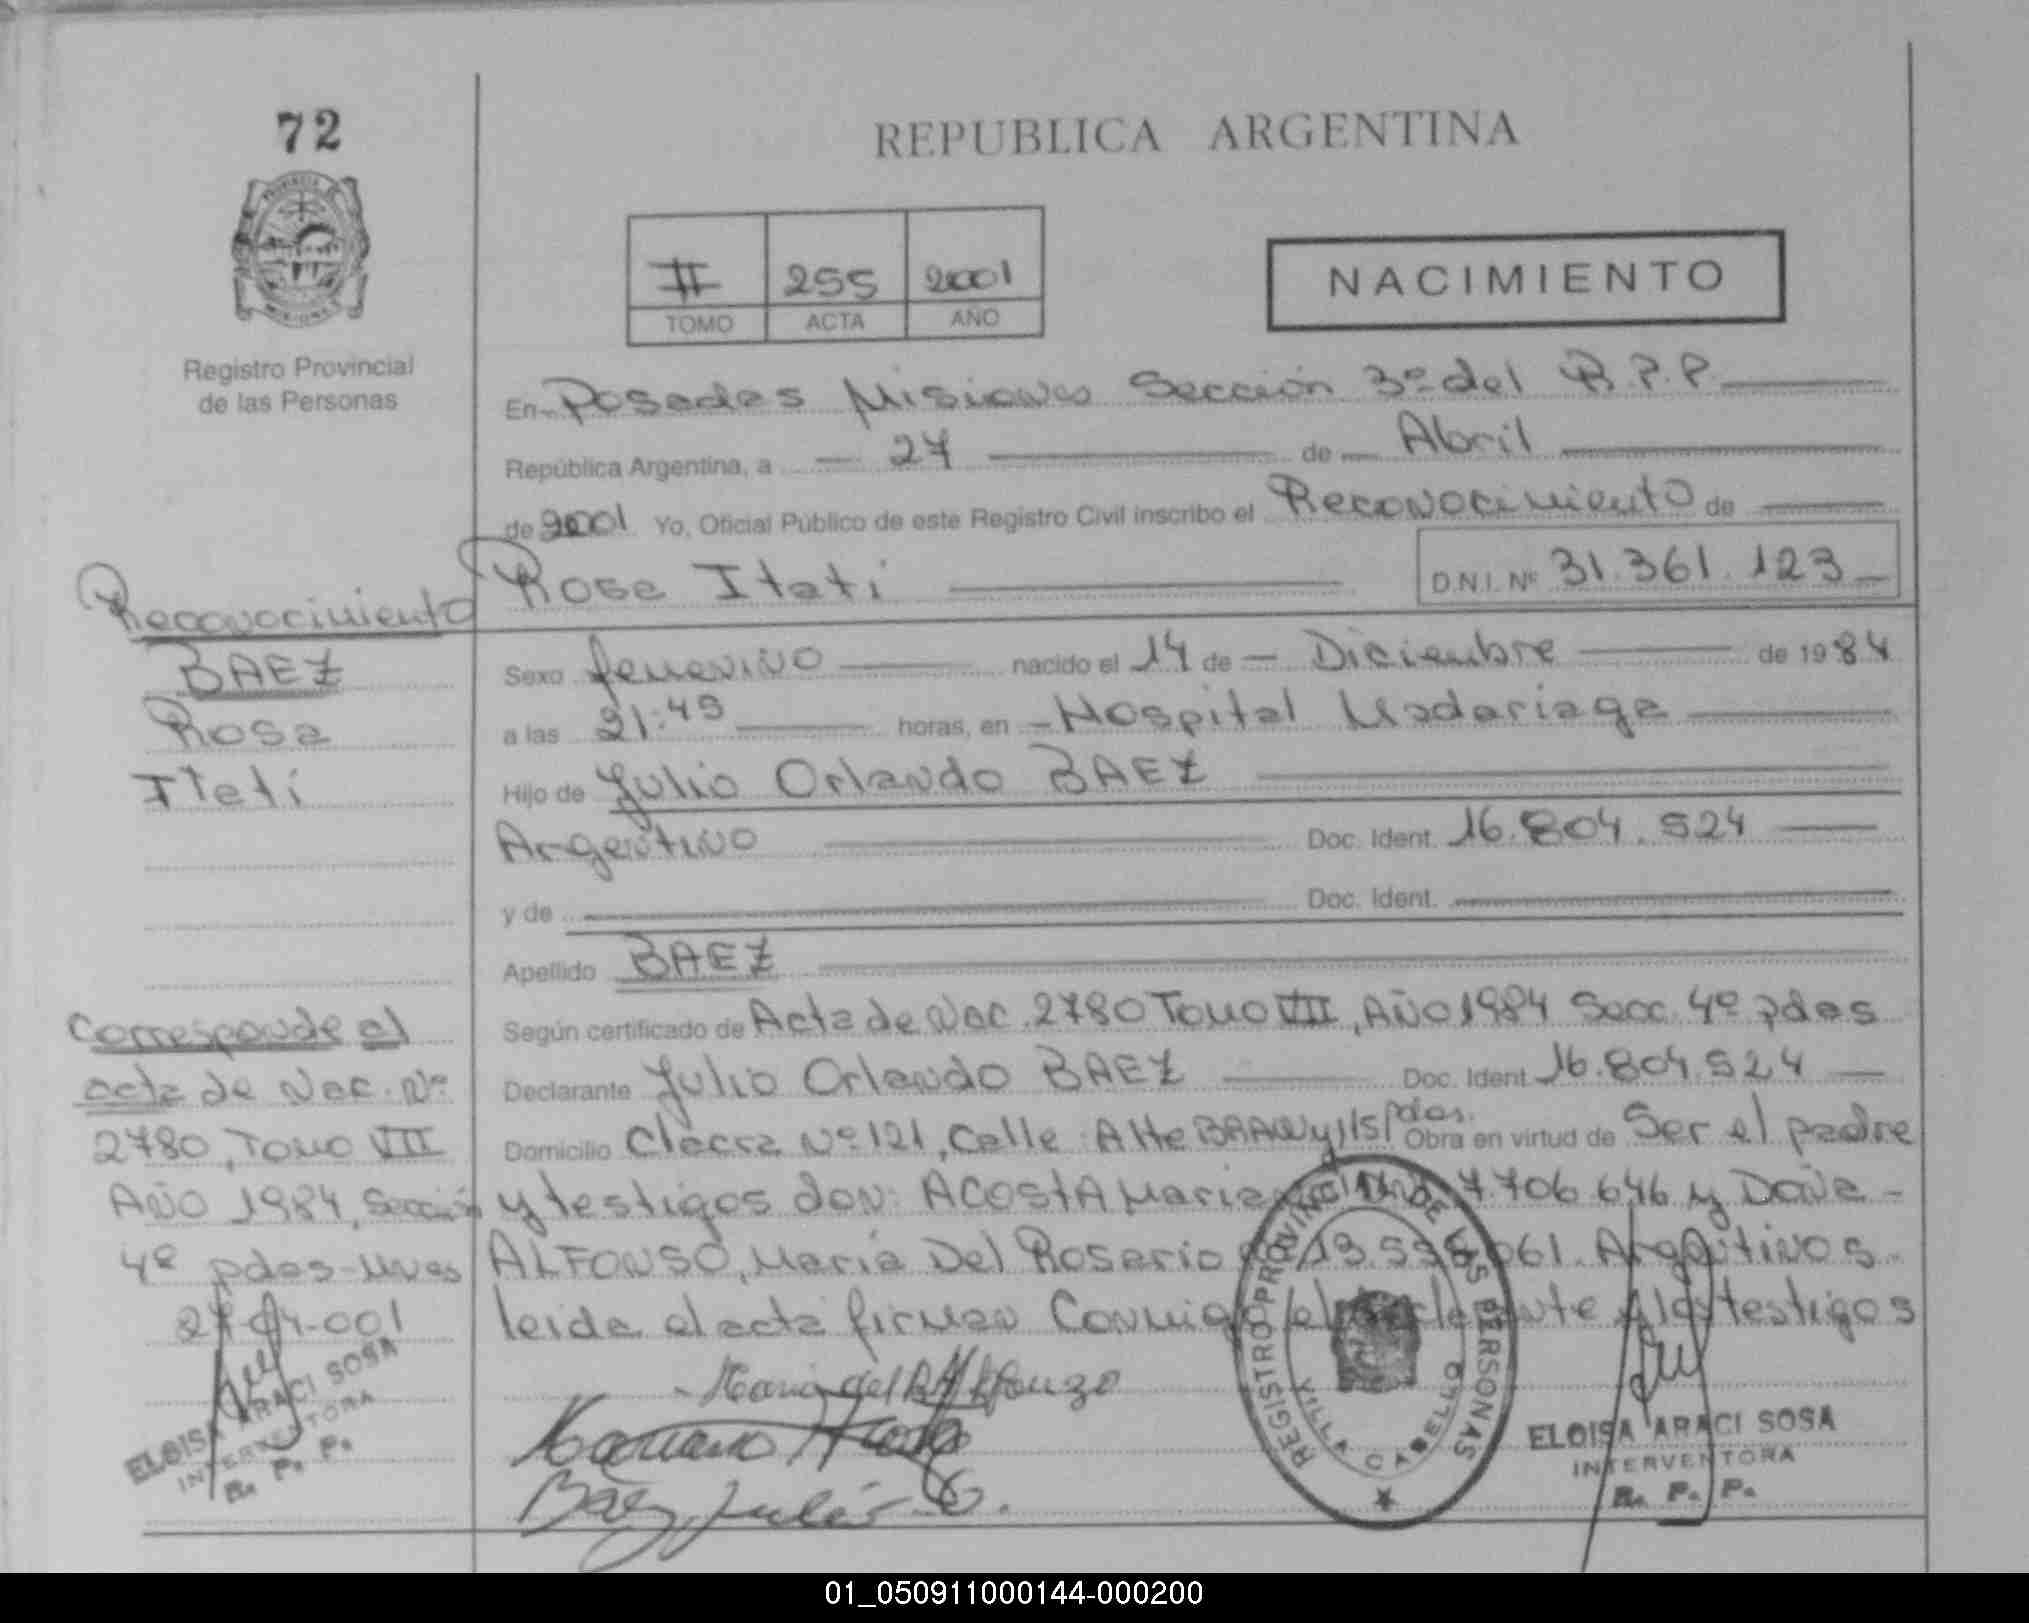 72
REPUBLICA ARGENTINA
II 255 2001
TOMO ACTA AÑO
NACIMIENTO
Registro Provincial
de las Personas
En Posadas Misiones Sección 3º del R.P.P.
República Argentina, a 27 de Abril
de 2001 Yo, Oficial Público de este Registro Civil inscribo el Reconocimiento de
Rosa Itatí D.N.I. Nº 31.361.123
Reconocimiento
BAEZ
Rosa
Itatí
Sexo femenino nacido el 14 de Diciembre de 1984
a las 21:45 horas, en Hospital Madariaga
Hijo de Julio Orlando BAEZ
Argentino Doc. Ident. 16.804.524
y de Doc. Ident.
Apellido BAEZ
Corresponde al
acta de Nac. Nº
2780, Tomo VII
Año 1984, Sección
4º pdas-Mnes
27-04-001
ELOISA ARACI SOSA
INTERVENTORA
R. P. P.
Según certificado de Acta de Nac. 2780 Tomo VII, Año 1984 Secc. 4º pdas
Declarante Julio Orlando BAEZ Doc. Ident 16.804.524
Domicilio Chacra Nº 121, Calle Alte BRAWN y 115 pdas. Obra en virtud de Ser el padre
y testigos don: ACOSTA 7.706.646 y Doña
ALFONSO, María Del Rosario Argentinos
leida el acta firman Conmigo el declarante y los testigos
María del R Alfonzo
Baez, Julio O.
REGISTRO PROVINCIAL DE LAS PERSONAS
VILLA CABELLO
ELOISA ARACI SOSA
INTERVENTORA
R. P. P.
01_050911000144-000200